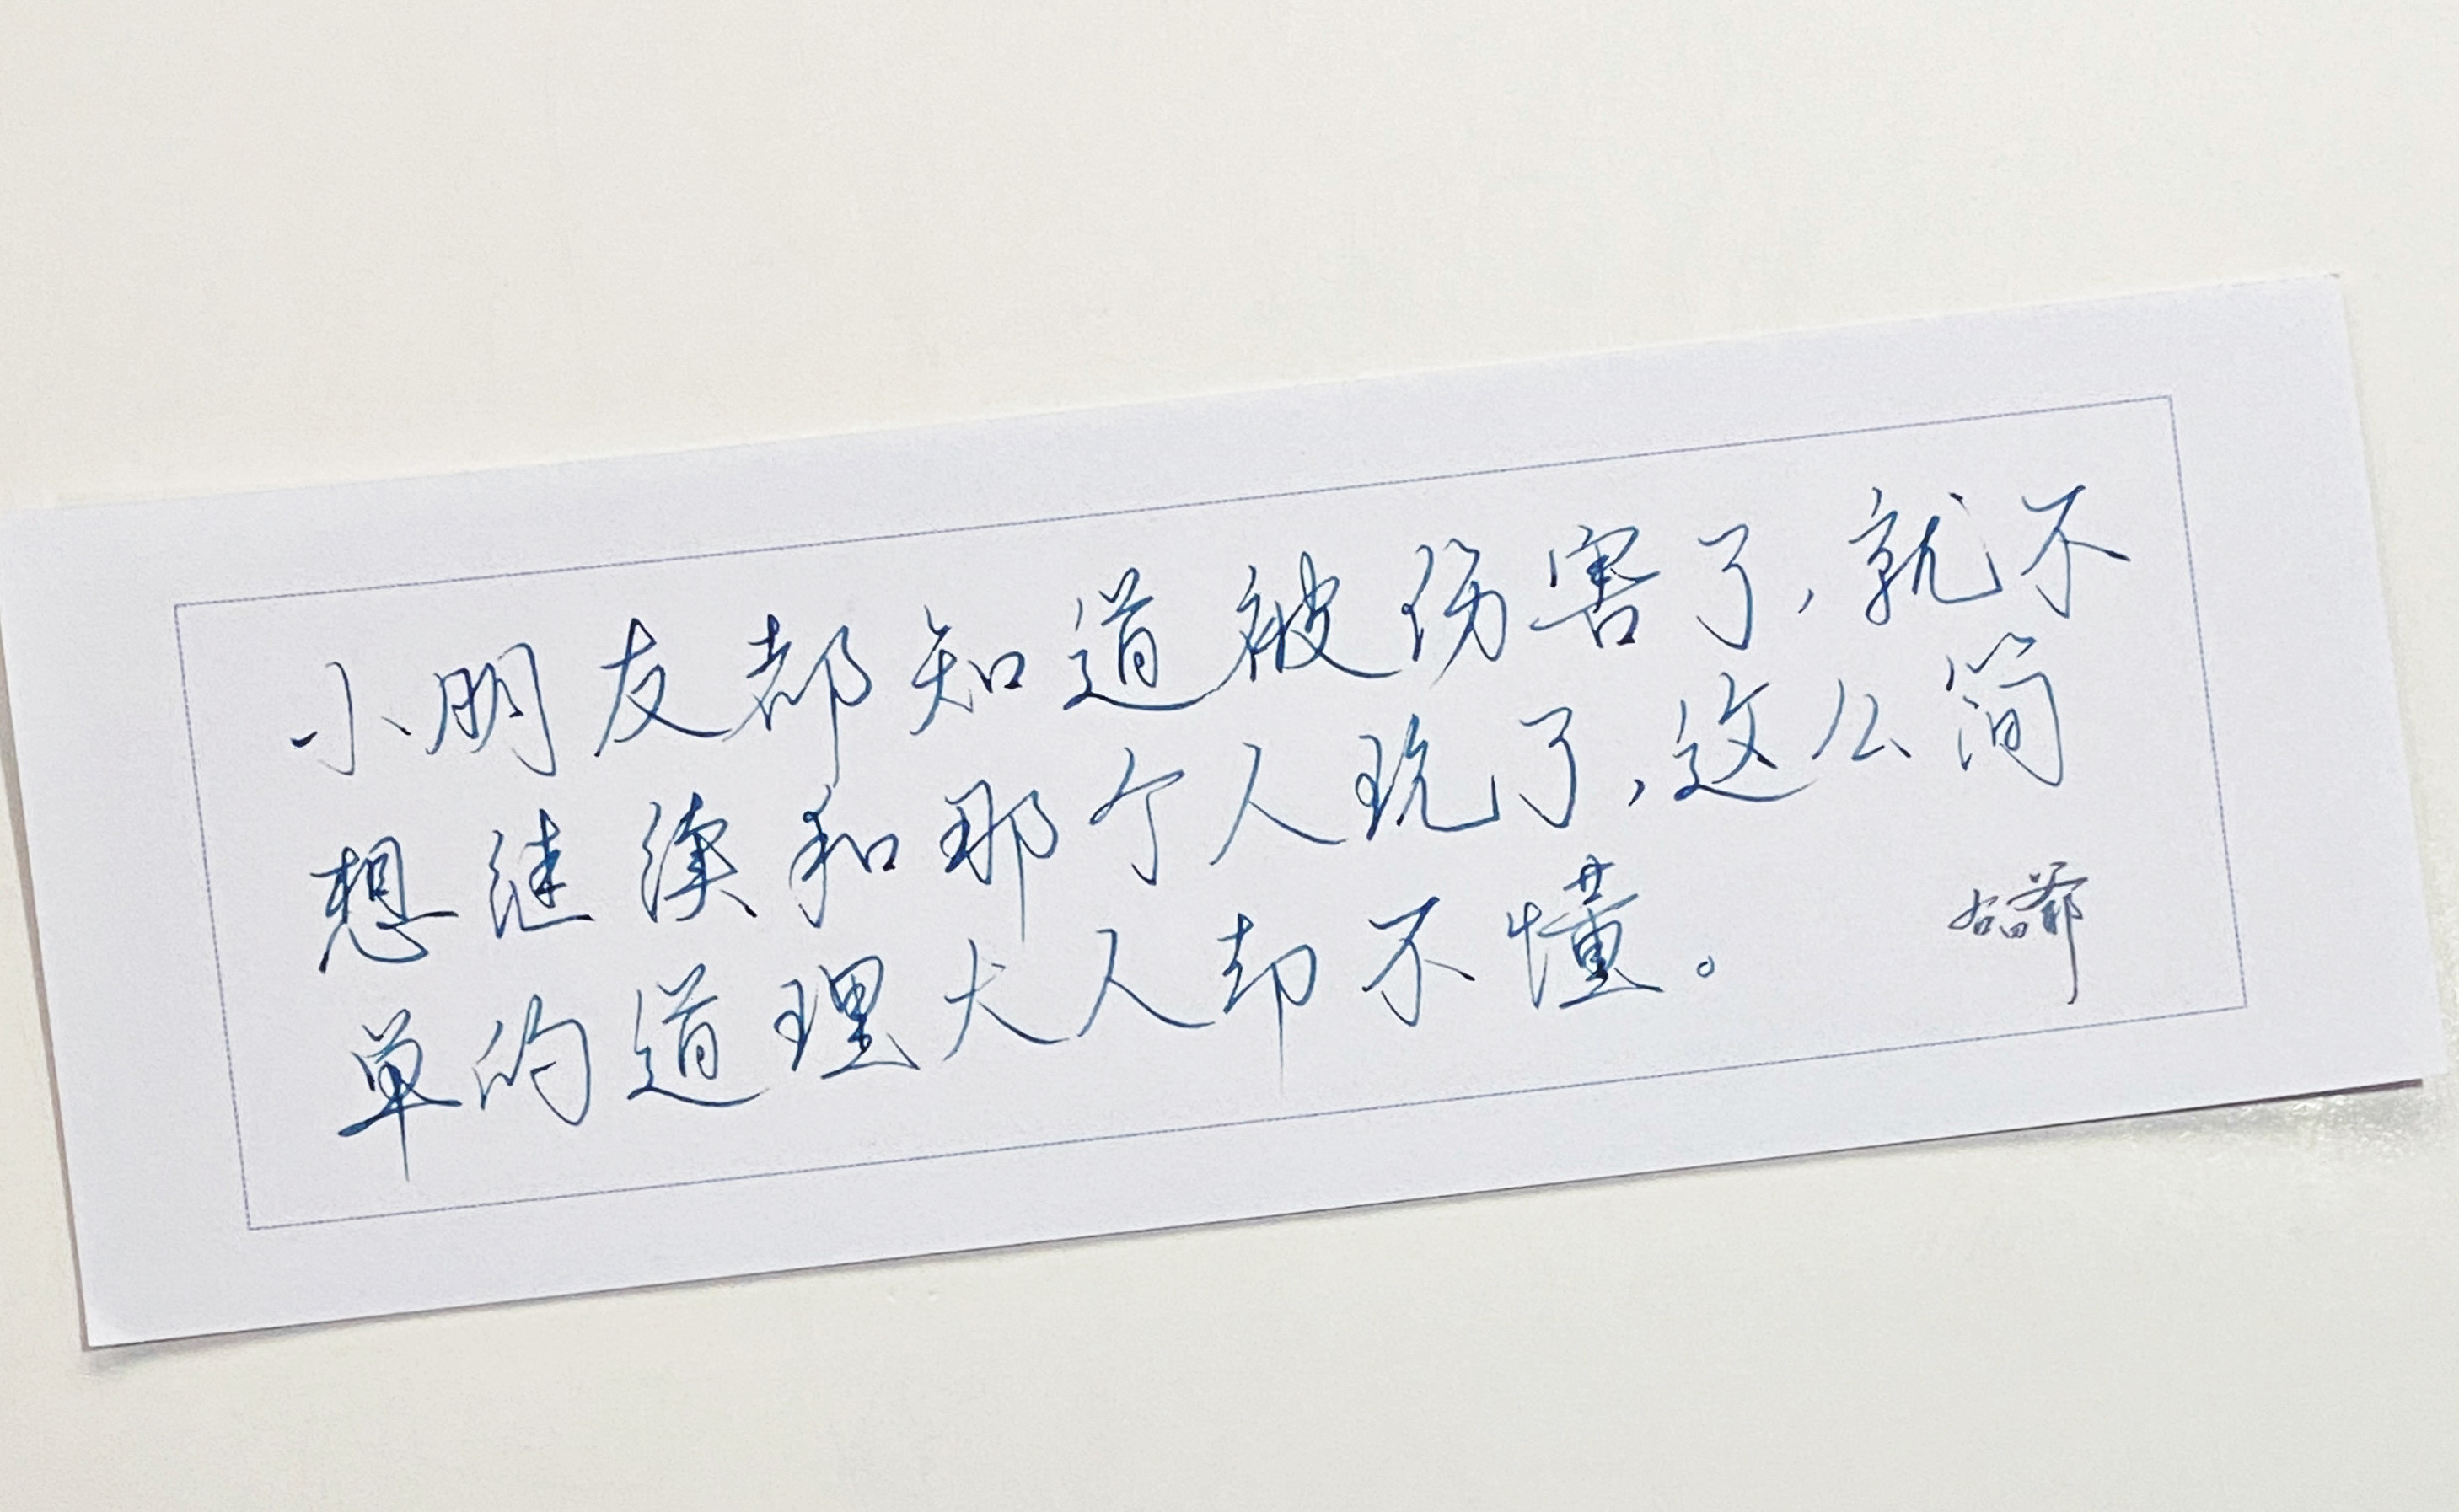 小朋友都知道被伤害了,就不
想继续和那个人玩了,这么简
单的道理大人却不懂。